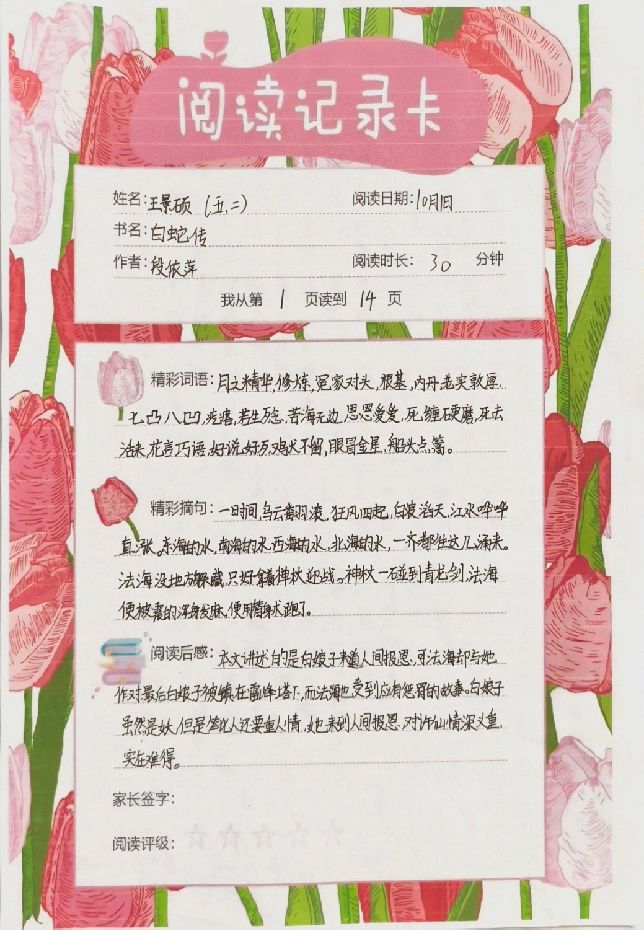 阅读记录卡
姓名:王景硕(五、二) 阅读日期:10月1日
书名:白蛇传
作者:段依萍 阅读时长: 30 分钟
我从第 1 页读到 14 页
精彩词语:月之精华,修炼,冤家对头,根基,内丹,老实敦厚
七凸八凹,疙瘩,若生万念,苦海无边,恩恩爱爱,死缠硬磨,死去
活来,花言巧语,好说好歹,鸡犬不留,眼冒金星,船头点篙。
精彩摘句:一时间,乌云翻滚,狂风四起,白浪滔天,江水哗哗
直涨,东海的水,南海的水,西海的水,北海的水,一齐都往这儿涌来。
法海没地方躲藏,只好拿着禅杖迎战。神杖一碰到青龙剑,法海
便被震的浑身发麻,便用隐身术跑了。
阅读后感:本文讲述的是白娘子来着人间报恩,可法海却与她
作对最后白娘子被镇在雷峰塔下,而法海也受到应有惩罚的故事。白娘子
虽然是妖,但是她比人还要重人情,她来到人间报恩,对许仙情深义重,
实在难得。
家长签字:
阅读评级: